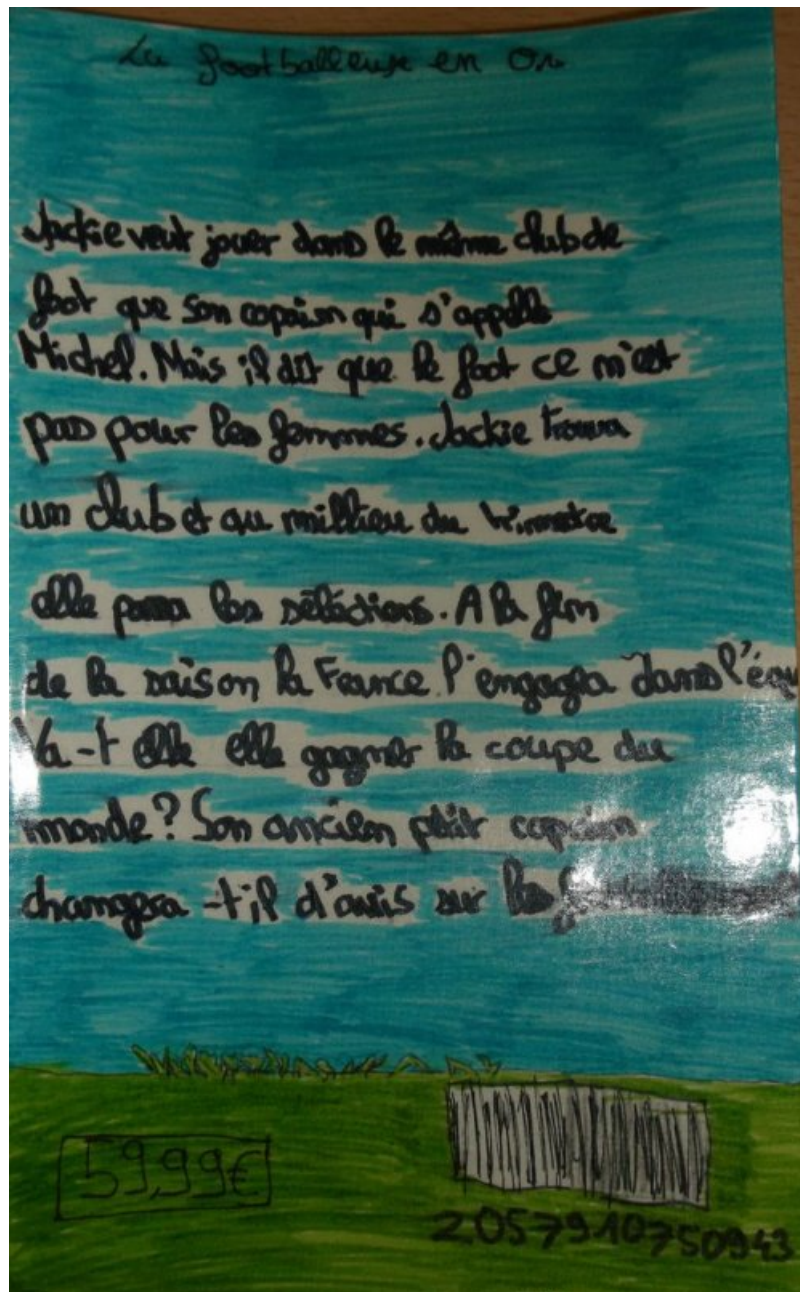 La footballeuse en Or
Jackie veut jouer dans le même club de
foot que son copain qui s'appelle
Michel. Mais il dit que le foot ce n'est
pas pour les femmes. Jackie trouva
un club et au millieu du trimestre
elle passa les séléctions. A la fin
de la saison la France l'engagea dans l'équ
Va-t elle elle gagner la coupe du
monde? Son ancien petit copain
changera-t'il d'avis sur les
59,99€
2057910750943